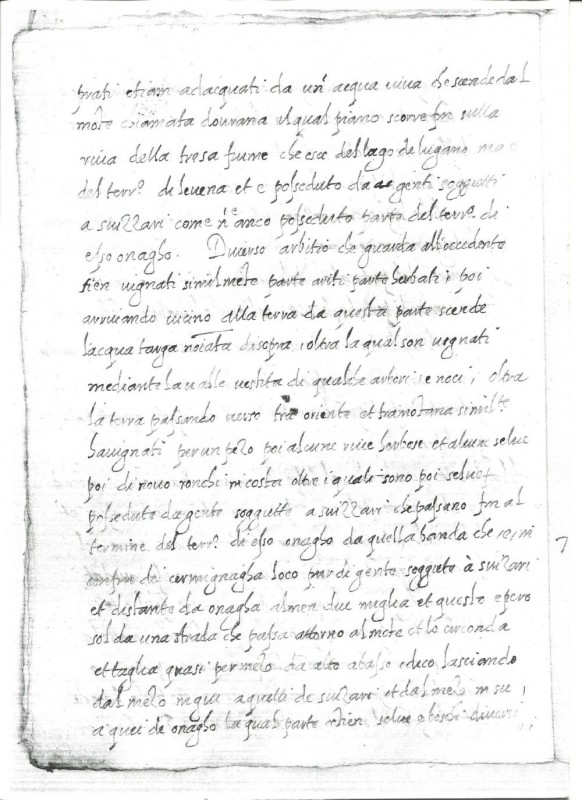 prati etiam adacquati da un' acqua viva che scende dal
mote chiamata dovrana il qual piano scorre fin sulla
riva della tresa fiume che esce del lago di lugano
del terr.o di levena et e posseduto da genti soggietti
a suizzari come n'e anco posseduto parte del terr.o di
esso onagho. Diverso arbitio che guarda all'occidente
fien vignati similmẽte parte ariti parte herbati i poi
arrivando vicino alla terra da questa parte scende
l'acqua targa noĩata di sopra, oltra la qual son vegnati
mediante la valle vestita di qualche arbori, e noci, oltra
la terra passando verso tra oriente et tramotana simil.te
ha vignati per un pezo poi alcune rive herbose et alcune selve
poi di novo ronchi in costa oltre i quali sono poi selve
possedute da gente soggiette a suizzari che passano fin al
termine del terr.o di esso onagho da quella banda che
confin di cermignagha loco pur di gente soggiete à suizari
et distante da onagha almen due miglia et questo e pero
sol da una strada che passa attorno al mote et lo circonda
et taglia quasi per mezo da alto a basso edico lasciando
dal mezo in giu a quelli de suizari et dal mezo in su,
a quei de onagho la qual parte tien selve e boschi diversi,